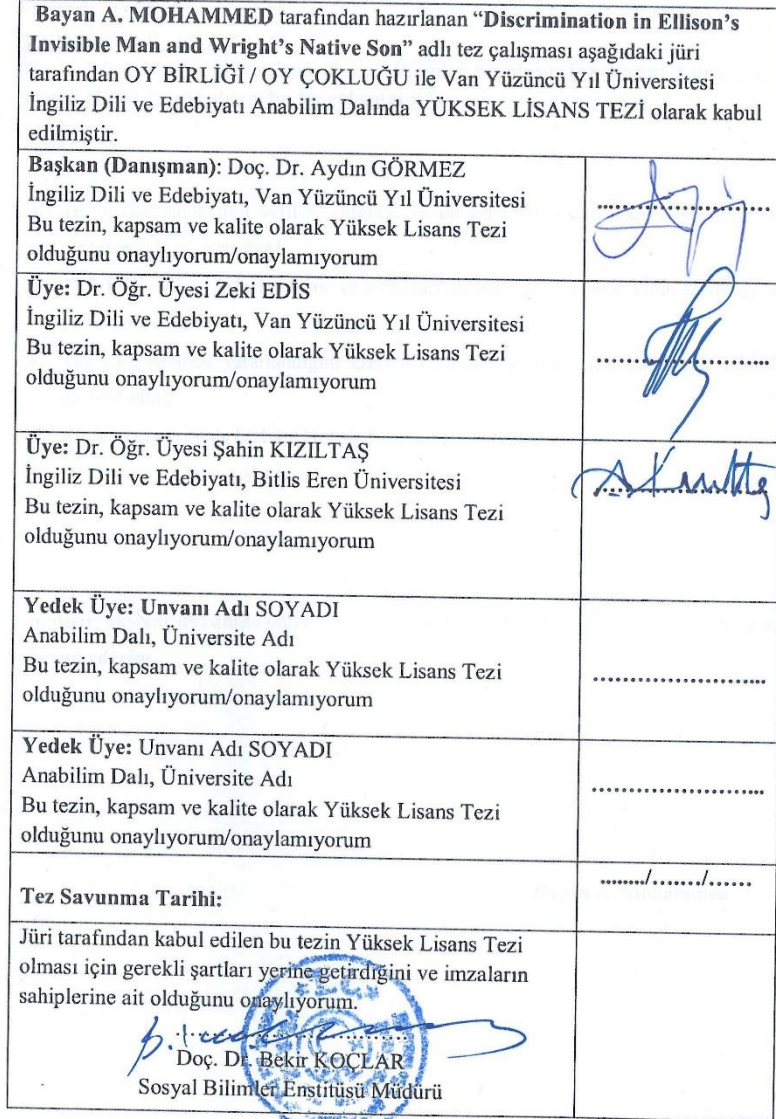 Bayan A. MOHAMMED tarafından hazırlanan “Discrimination in Ellison’s
Invisible Man and Wright’s Native Son” adlı tez çalışması aşağıdaki jüri
tarafından OY BİRLİĞİ / OY ÇOKLUĞU ile Van Yüzüncü Yıl Üniversitesi
İngiliz Dili ve Edebiyatı Anabilim Dalında YÜKSEK LİSANS TEZİ olarak kabul
edilmiştir.
Başkan (Danışman): Doç. Dr. Aydın GÖRMEZ
İngiliz Dili ve Edebiyatı, Van Yüzüncü Yıl Üniversitesi
Bu tezin, kapsam ve kalite olarak Yüksek Lisans Tezi
olduğunu onaylıyorum/onaylamıyorum
Üye: Dr. Öğr. Üyesi Zeki EDİS
İngiliz Dili ve Edebiyatı, Van Yüzüncü Yıl Üniversitesi
Bu tezin, kapsam ve kalite olarak Yüksek Lisans Tezi
olduğunu onaylıyorum/onaylamıyorum
Üye: Dr. Öğr. Üyesi Şahin KIZILTAŞ
İngiliz Dili ve Edebiyatı, Bitlis Eren Üniversitesi
Bu tezin, kapsam ve kalite olarak Yüksek Lisans Tezi
olduğunu onaylıyorum/onaylamıyorum
Yedek Üye: Unvanı Adı SOYADI
Anabilim Dalı, Üniversite Adı
Bu tezin, kapsam ve kalite olarak Yüksek Lisans Tezi
olduğunu onaylıyorum/onaylamıyorum
Yedek Üye: Unvanı Adı SOYADI
Anabilim Dalı, Üniversite Adı
Bu tezin, kapsam ve kalite olarak Yüksek Lisans Tezi
olduğunu onaylıyorum/onaylamıyorum
Tez Savunma Tarihi: ......../......../......
Jüri tarafından kabul edilen bu tezin Yüksek Lisans Tezi
olması için gerekli şartları yerine getirdiğini ve imzaların
sahiplerine ait olduğunu onaylıyorum.
Doç. Dr. Bekir KOÇLAR
Sosyal Bilimler Enstitüsü Müdürü